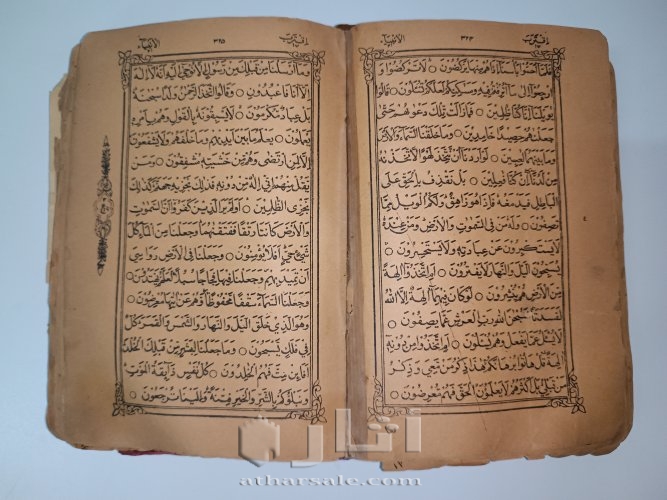 اقترب ٣٢٤ الانبياء
فَلَمَّا اَحَسُّوا بَاْسَنَا اِذَا هُمْ مِنْهَا يَرْكُضُونَ ○ لَا تَرْكُضُوا وَ
ارْجِعُوا اِلَى مَا اُتْرِفْتُمْ فِيهِ وَمَسَاكِنِكُمْ لَعَلَّكُمْ تُسْئَلُونَ ○ قَالُوا
يَا وَيْلَنَا اِنَّا كُنَّا ظَالِمِينَ ○ فَمَا زَالَتْ تِلْكَ دَعْوٰيهُمْ حَتَّى
جَعَلْنَاهُمْ حَصِيدًا خَامِدِينَ ○ وَمَا خَلَقْنَا السَّمَاءَ وَالْاَرْضَ
وَمَا بَيْنَهُمَا لَاعِبِينَ ○ لَوْ اَرَدْنَا اَنْ نَتَّخِذَ لَهْوًا لَاتَّخَذْنَاهُ
مِنْ لَدُنَّا اِنْ كُنَّا فَاعِلِينَ ○ بَلْ نَقْذِفُ بِالْحَقِّ عَلَى
الْبَاطِلِ فَيَدْمَغُهُ فَاِذَا هُوَ زَاهِقٌ وَلَكُمُ الْوَيْلُ مِمَّا
تَصِفُونَ ○ وَلَهُ مَنْ فِي السَّمٰوَاتِ وَالْاَرْضِ وَمَنْ عِنْدَهُ
لَا يَسْتَكْبِرُونَ عَنْ عِبَادَتِهِ وَلَا يَسْتَحْسِرُونَ ○
يُسَبِّحُونَ الَّيْلَ وَالنَّهَارَ لَا يَفْتُرُونَ ○ اَمِ اتَّخَذُوا اٰلِهَةً
مِنَ الْاَرْضِ هُمْ يُنْشِرُونَ ○ لَوْ كَانَ فِيهِمَا اٰلِهَةٌ اِلَّا اللهُ
لَفَسَدَتَا فَسُبْحَانَ اللهِ رَبِّ الْعَرْشِ عَمَّا يَصِفُونَ ○
لَا يُسْئَلُ عَمَّا يَفْعَلُ وَهُمْ يُسْئَلُونَ ○ اَمِ اتَّخَذُوا مِنْ دُونِهِ
اٰلِهَةً قُلْ هَاتُوا بُرْهَانَكُمْ هٰذَا ذِكْرُ مَنْ مَعِيَ وَذِكْرُ
مَنْ قَبْلِي بَلْ اَكْثَرُهُمْ لَا يَعْلَمُونَ الْحَقَّ فَهُمْ مُعْرِضُونَ ○
١٧
اقترب ٣٢٥ الانبياء
وَمَا اَرْسَلْنَا مِنْ قَبْلِكَ مِنْ رَسُولٍ اِلَّا نُوحِي اِلَيْهِ اَنَّهُ لَا اِلٰهَ
اِلَّا اَنَا فَاعْبُدُونِ ○ وَقَالُوا اتَّخَذَ الرَّحْمٰنُ وَلَدًا سُبْحَانَهُ
بَلْ عِبَادٌ مُكْرَمُونَ ○ لَا يَسْبِقُونَهُ بِالْقَوْلِ وَهُمْ بِاَمْرِهِ
يَعْمَلُونَ ○ يَعْلَمُ مَا بَيْنَ اَيْدِيهِمْ وَمَا خَلْفَهُمْ وَلَا يَشْفَعُونَ
اِلَّا لِمَنِ ارْتَضَى وَهُمْ مِنْ خَشْيَتِهِ مُشْفِقُونَ ○ وَمَنْ
يَقُلْ مِنْهُمْ اِنِّي اِلٰهٌ مِنْ دُونِهِ فَذٰلِكَ نَجْزِيهِ جَهَنَّمَ كَذٰلِكَ
نَجْزِي الظَّالِمِينَ ○ اَوَلَمْ يَرَ الَّذِينَ كَفَرُوا اَنَّ السَّمٰوَاتِ
وَالْاَرْضَ كَانَتَا رَتْقًا فَفَتَقْنَاهُمَا وَجَعَلْنَا مِنَ الْمَاءِ كُلَّ
شَيْءٍ حَيٍّ اَفَلَا يُؤْمِنُونَ ○ وَجَعَلْنَا فِي الْاَرْضِ رَوَاسِيَ
اَنْ تَمِيدَ بِهِمْ وَجَعَلْنَا فِيهَا فِجَاجًا سُبُلًا لَعَلَّهُمْ يَهْتَدُونَ ○
وَجَعَلْنَا السَّمَاءَ سَقْفًا مَحْفُوظًا وَهُمْ عَنْ اٰيَاتِهَا مُعْرِضُونَ ○
وَهُوَ الَّذِي خَلَقَ الَّيْلَ وَالنَّهَارَ وَالشَّمْسَ وَالْقَمَرَ كُلٌّ
فِي فَلَكٍ يَسْبَحُونَ ○ وَمَا جَعَلْنَا لِبَشَرٍ مِنْ قَبْلِكَ الْخُلْدَ
اَفَاِنْ مِتَّ فَهُمُ الْخَالِدُونَ ○ كُلُّ نَفْسٍ ذَائِقَةُ الْمَوْتِ
وَنَبْلُوكُمْ بِالشَّرِّ وَالْخَيْرِ فِتْنَةً وَاِلَيْنَا تُرْجَعُونَ ○
أثارة
atharsale.com